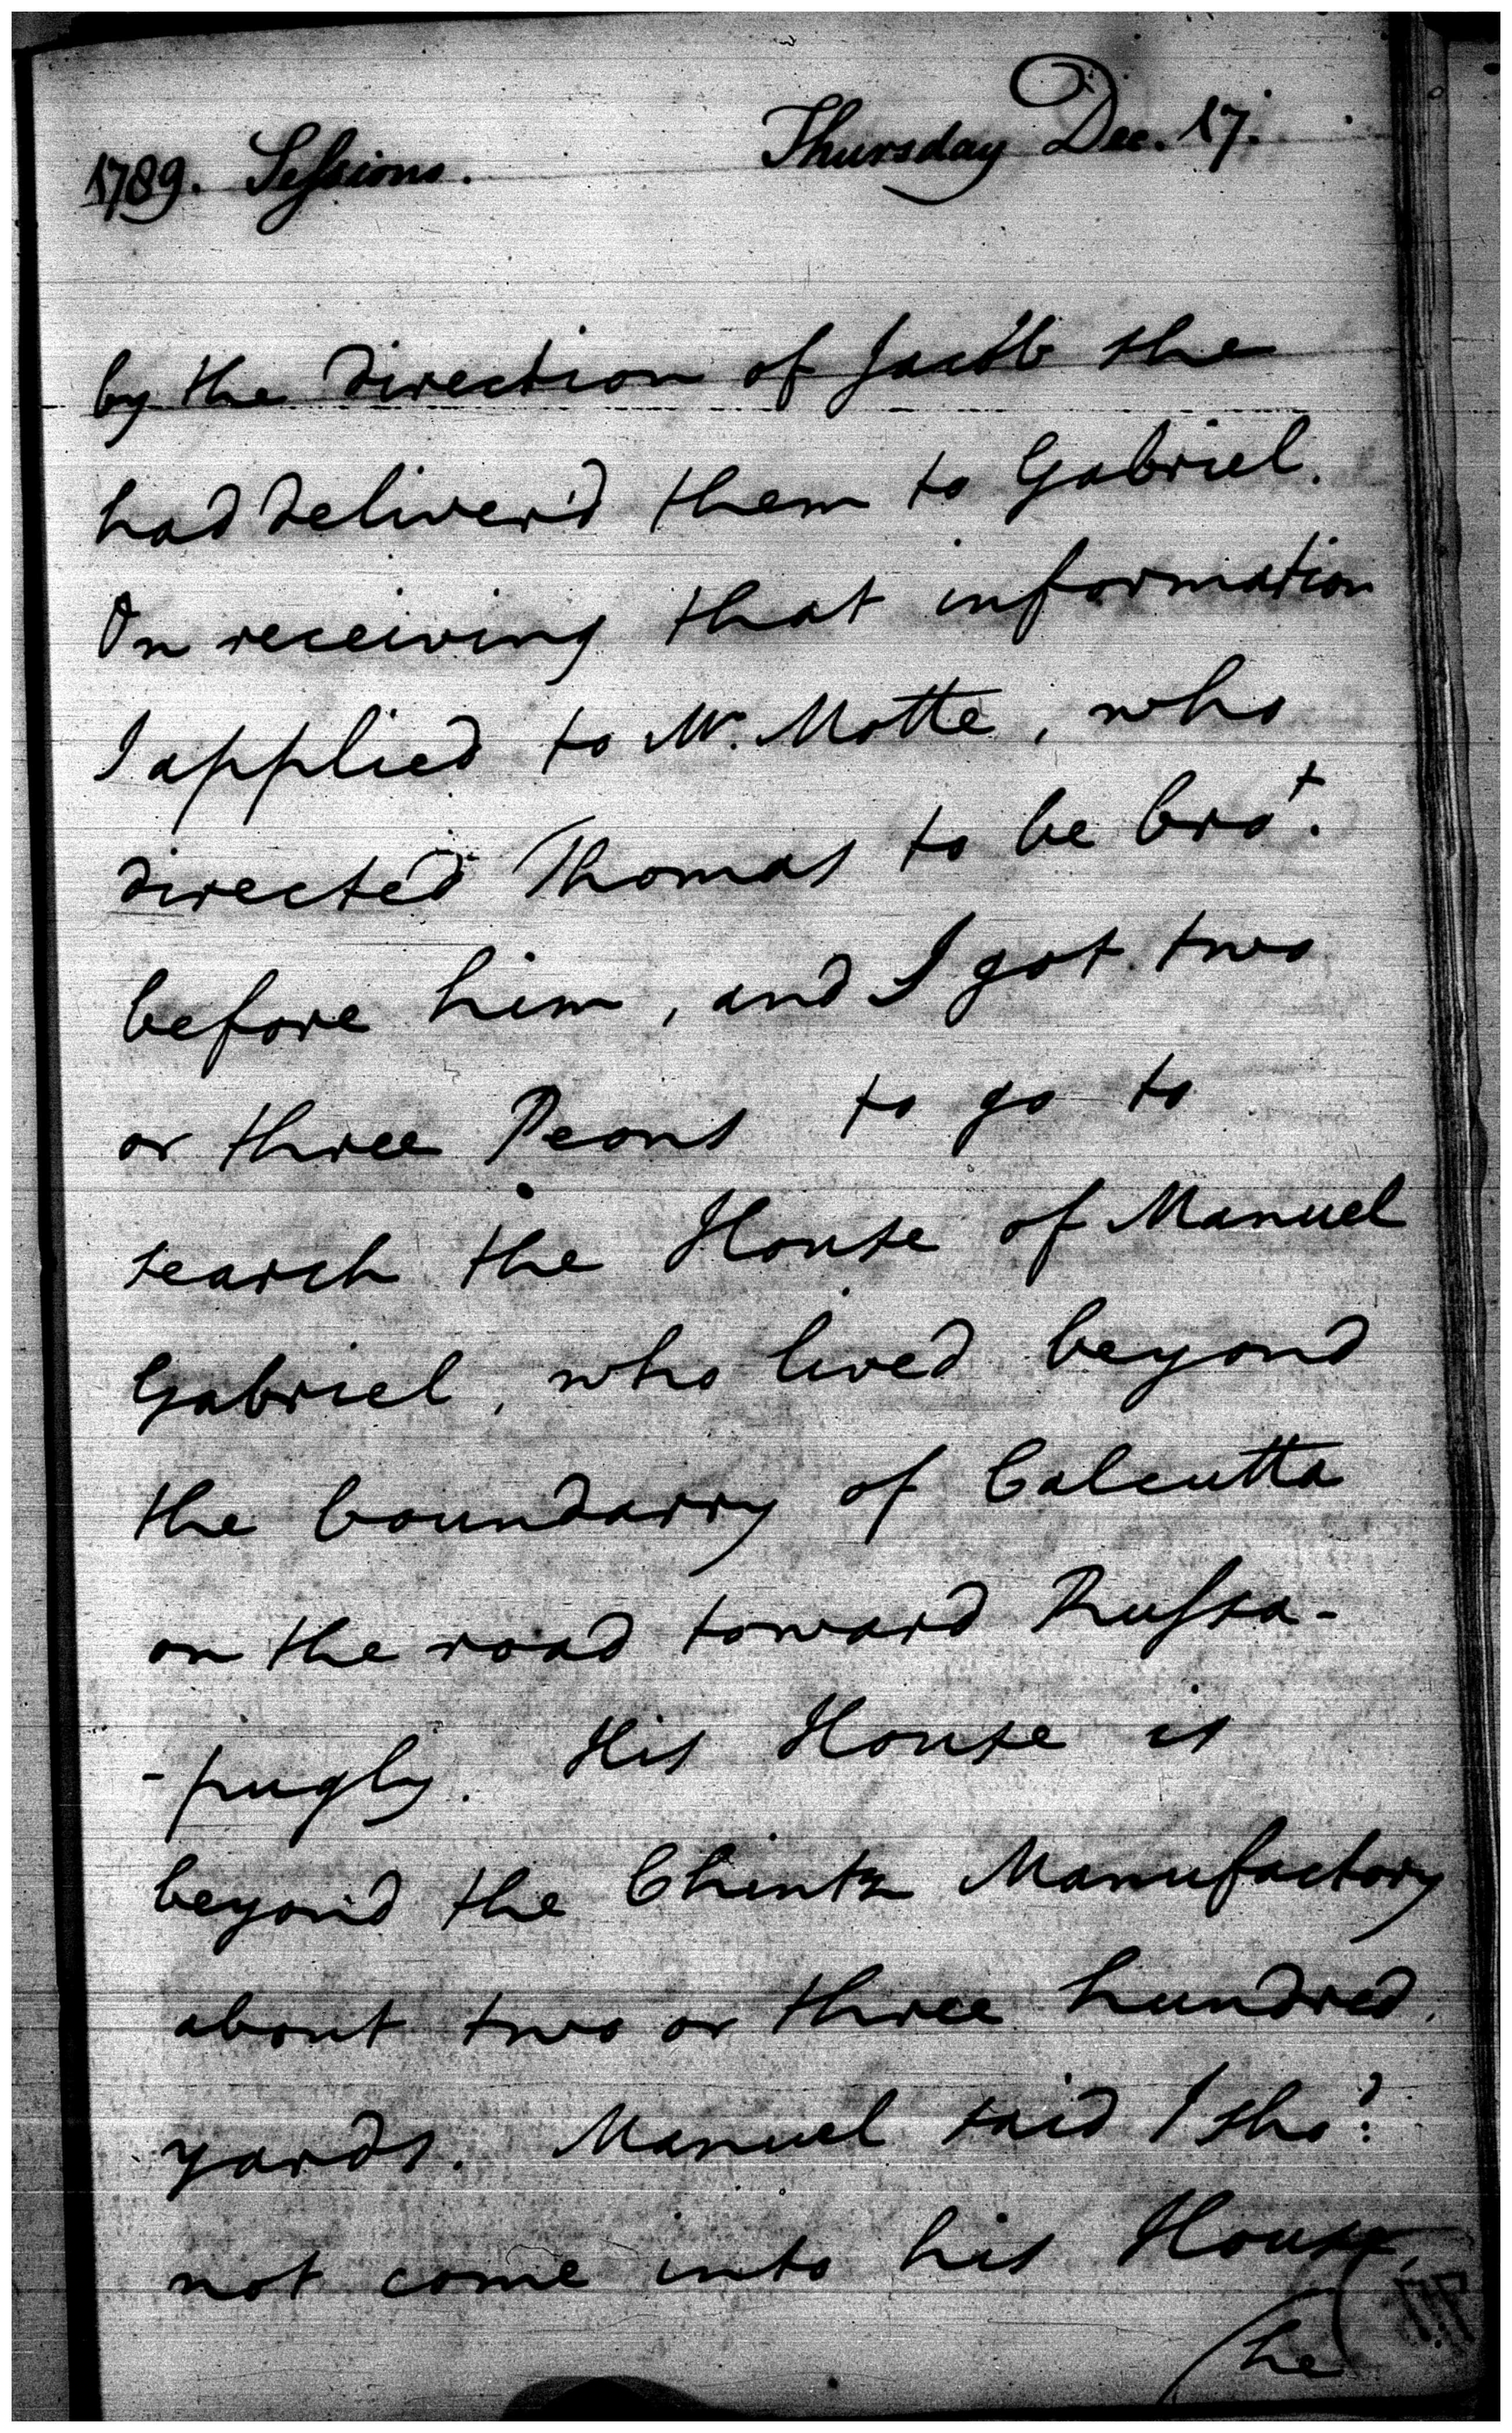 1789. Sessions. Thursday Dec. 17.
by the direction of Jacob she
had deliver'd them to Gabriel.
On receiving that information
I applied to Mr. Motte, who
directed Thomas to be bro't.
before him, and I got two
or three Peons to go to
search the House of Manuel
Gabriel, who lived beyond
the boundarry of Calcutta
on the road toward Russa-
-pugly. His House is
beyond the Chintz Manufactory
about two or three hundred
yards. Manuel said I sho'd:
not come into his House,
(he